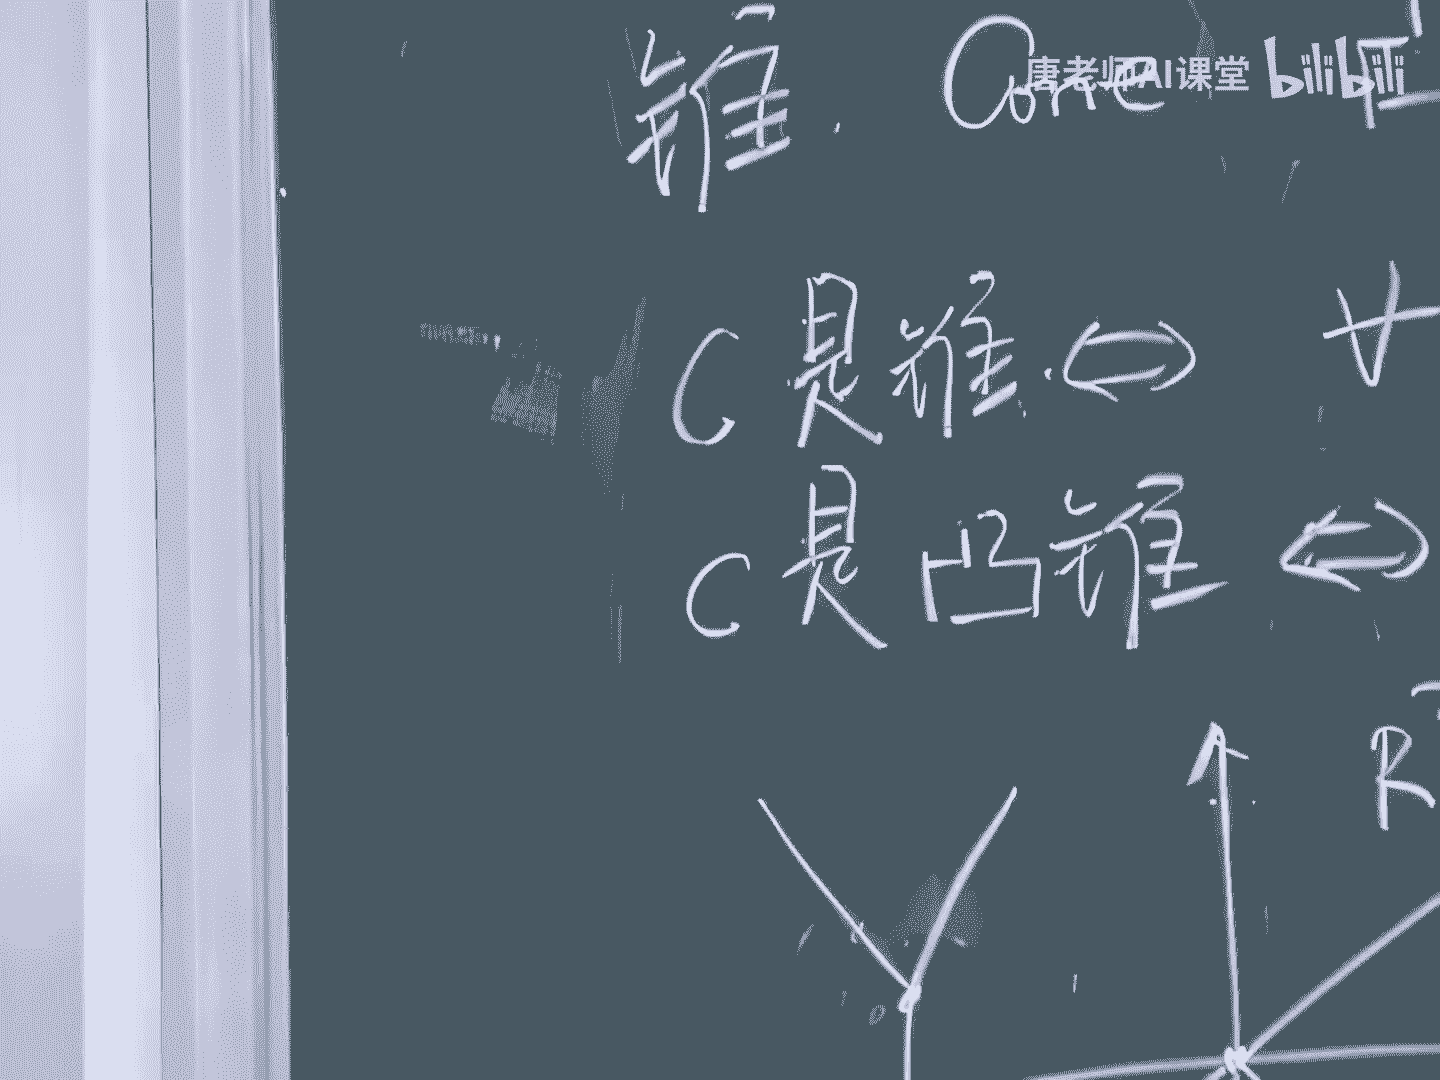 锥. Cone
唐老师AI课堂 bilibili
C 是锥. ⇔ ∀
C 是凸锥 ⇔
R
0